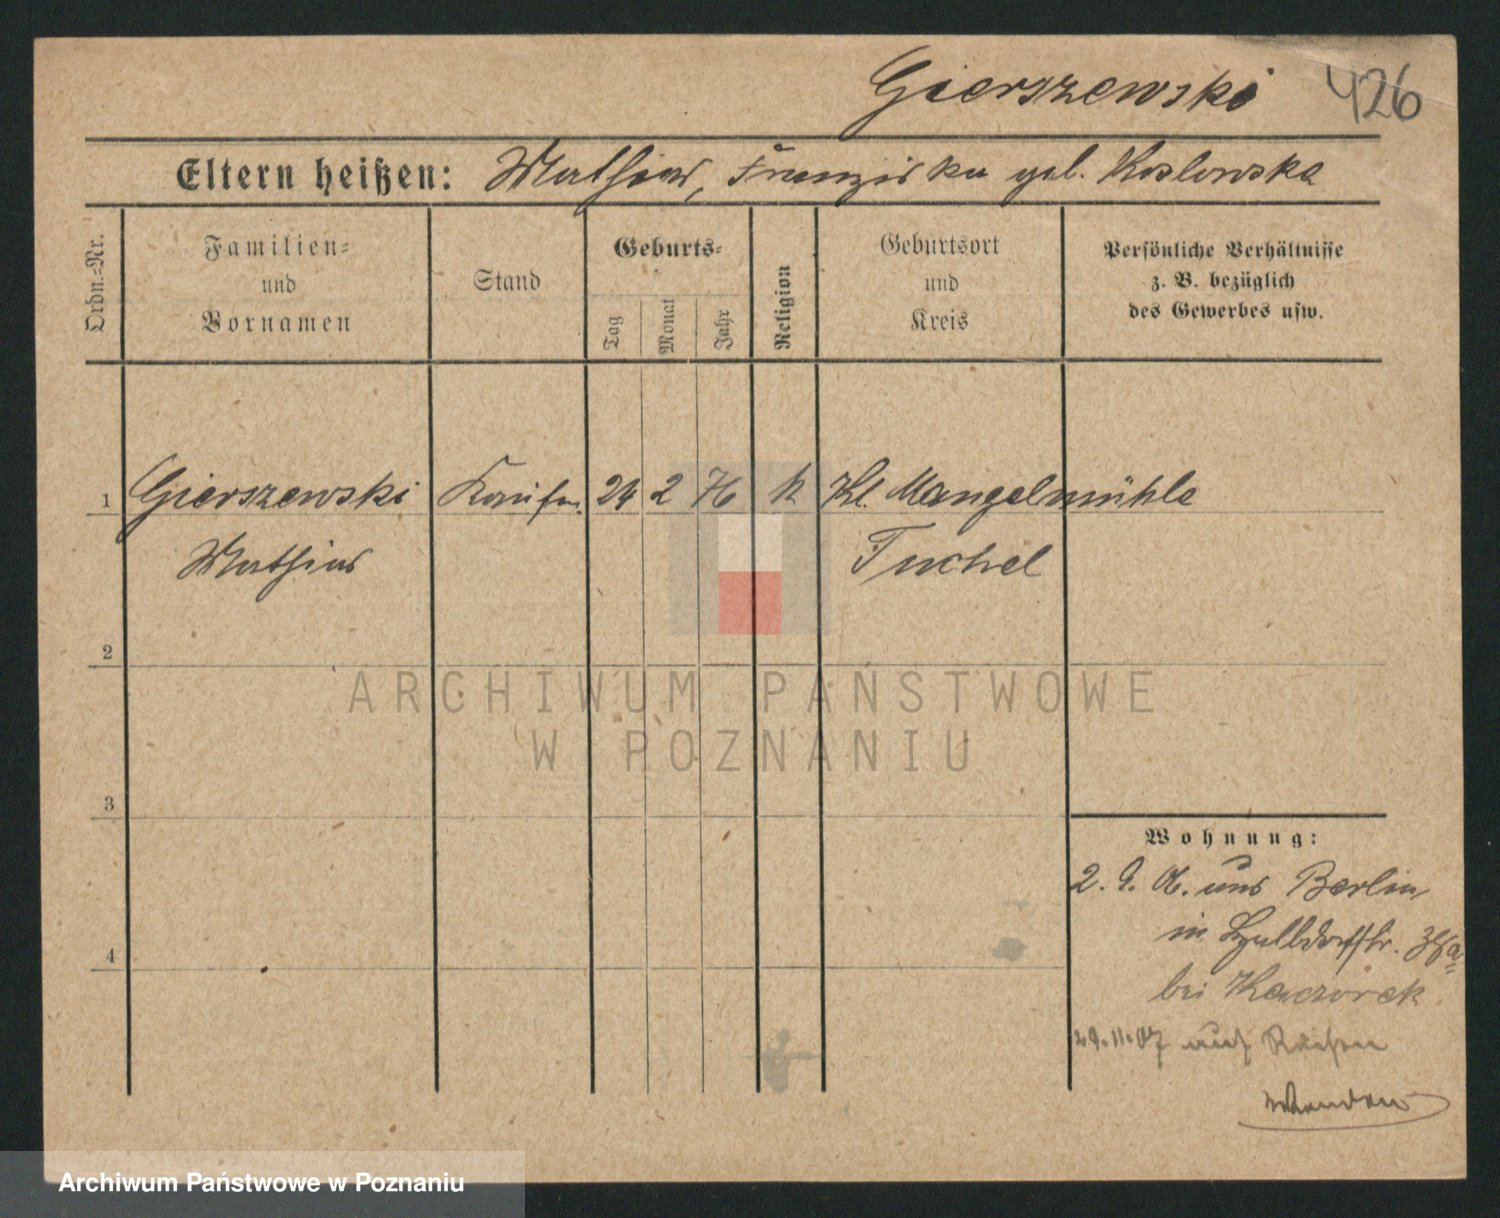 Gierszewski 426
Eltern heißen: Mathias, Franziska geb. Koslowska
Ordn.-Nr.
Familien-
und
Vornamen
Stand
Geburts-
Tag
Monat
Jahr
Religion
Geburtsort
und
Kreis
Persönliche Verhältnisse
z. B. bezüglich
des Gewerbes usw.
1 Gierszewski Kaufm. 24 2 76 k Kl. Mangelmühle
Mathias Tuchel
2
ARCHIWUM PAŃSTWOWE
W POZNANIU
3
Wohnung:
2. 9. 06. aus Berlin
in
4
bei Kaczorek
29.11.07 auf Reisen
Archiwum Państwowe w Poznaniu